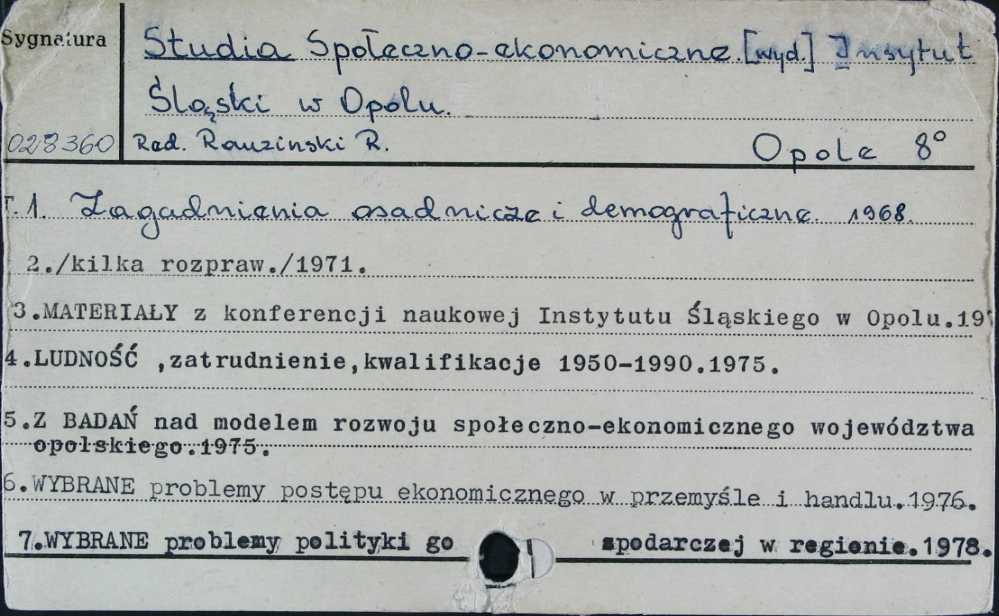 Sygnatura
Studia Społeczno-ekonomiczne. [wyd.] Instytut
Śląski w Opolu.
028360 Red. Rauziński R. Opole 8°
T.1. Zagadnienia osadnicze i demograficzne. 1968.
2./kilka rozpraw./1971.
3.MATERIAŁY z konferencji naukowej Instytutu Śląskiego w Opolu.19
4.LUDNOŚĆ ,zatrudnienie,kwalifikacje 1950-1990.1975.
5.Z BADAŃ nad modelem rozwoju społeczno-ekonomicznego województwa
opolskiego.1975.
6.WYBRANE problemy postępu ekonomicznego w przemyśle i handlu.1976.
7.WYBRANE problemy polityki go spodarczej w regionie.1978.